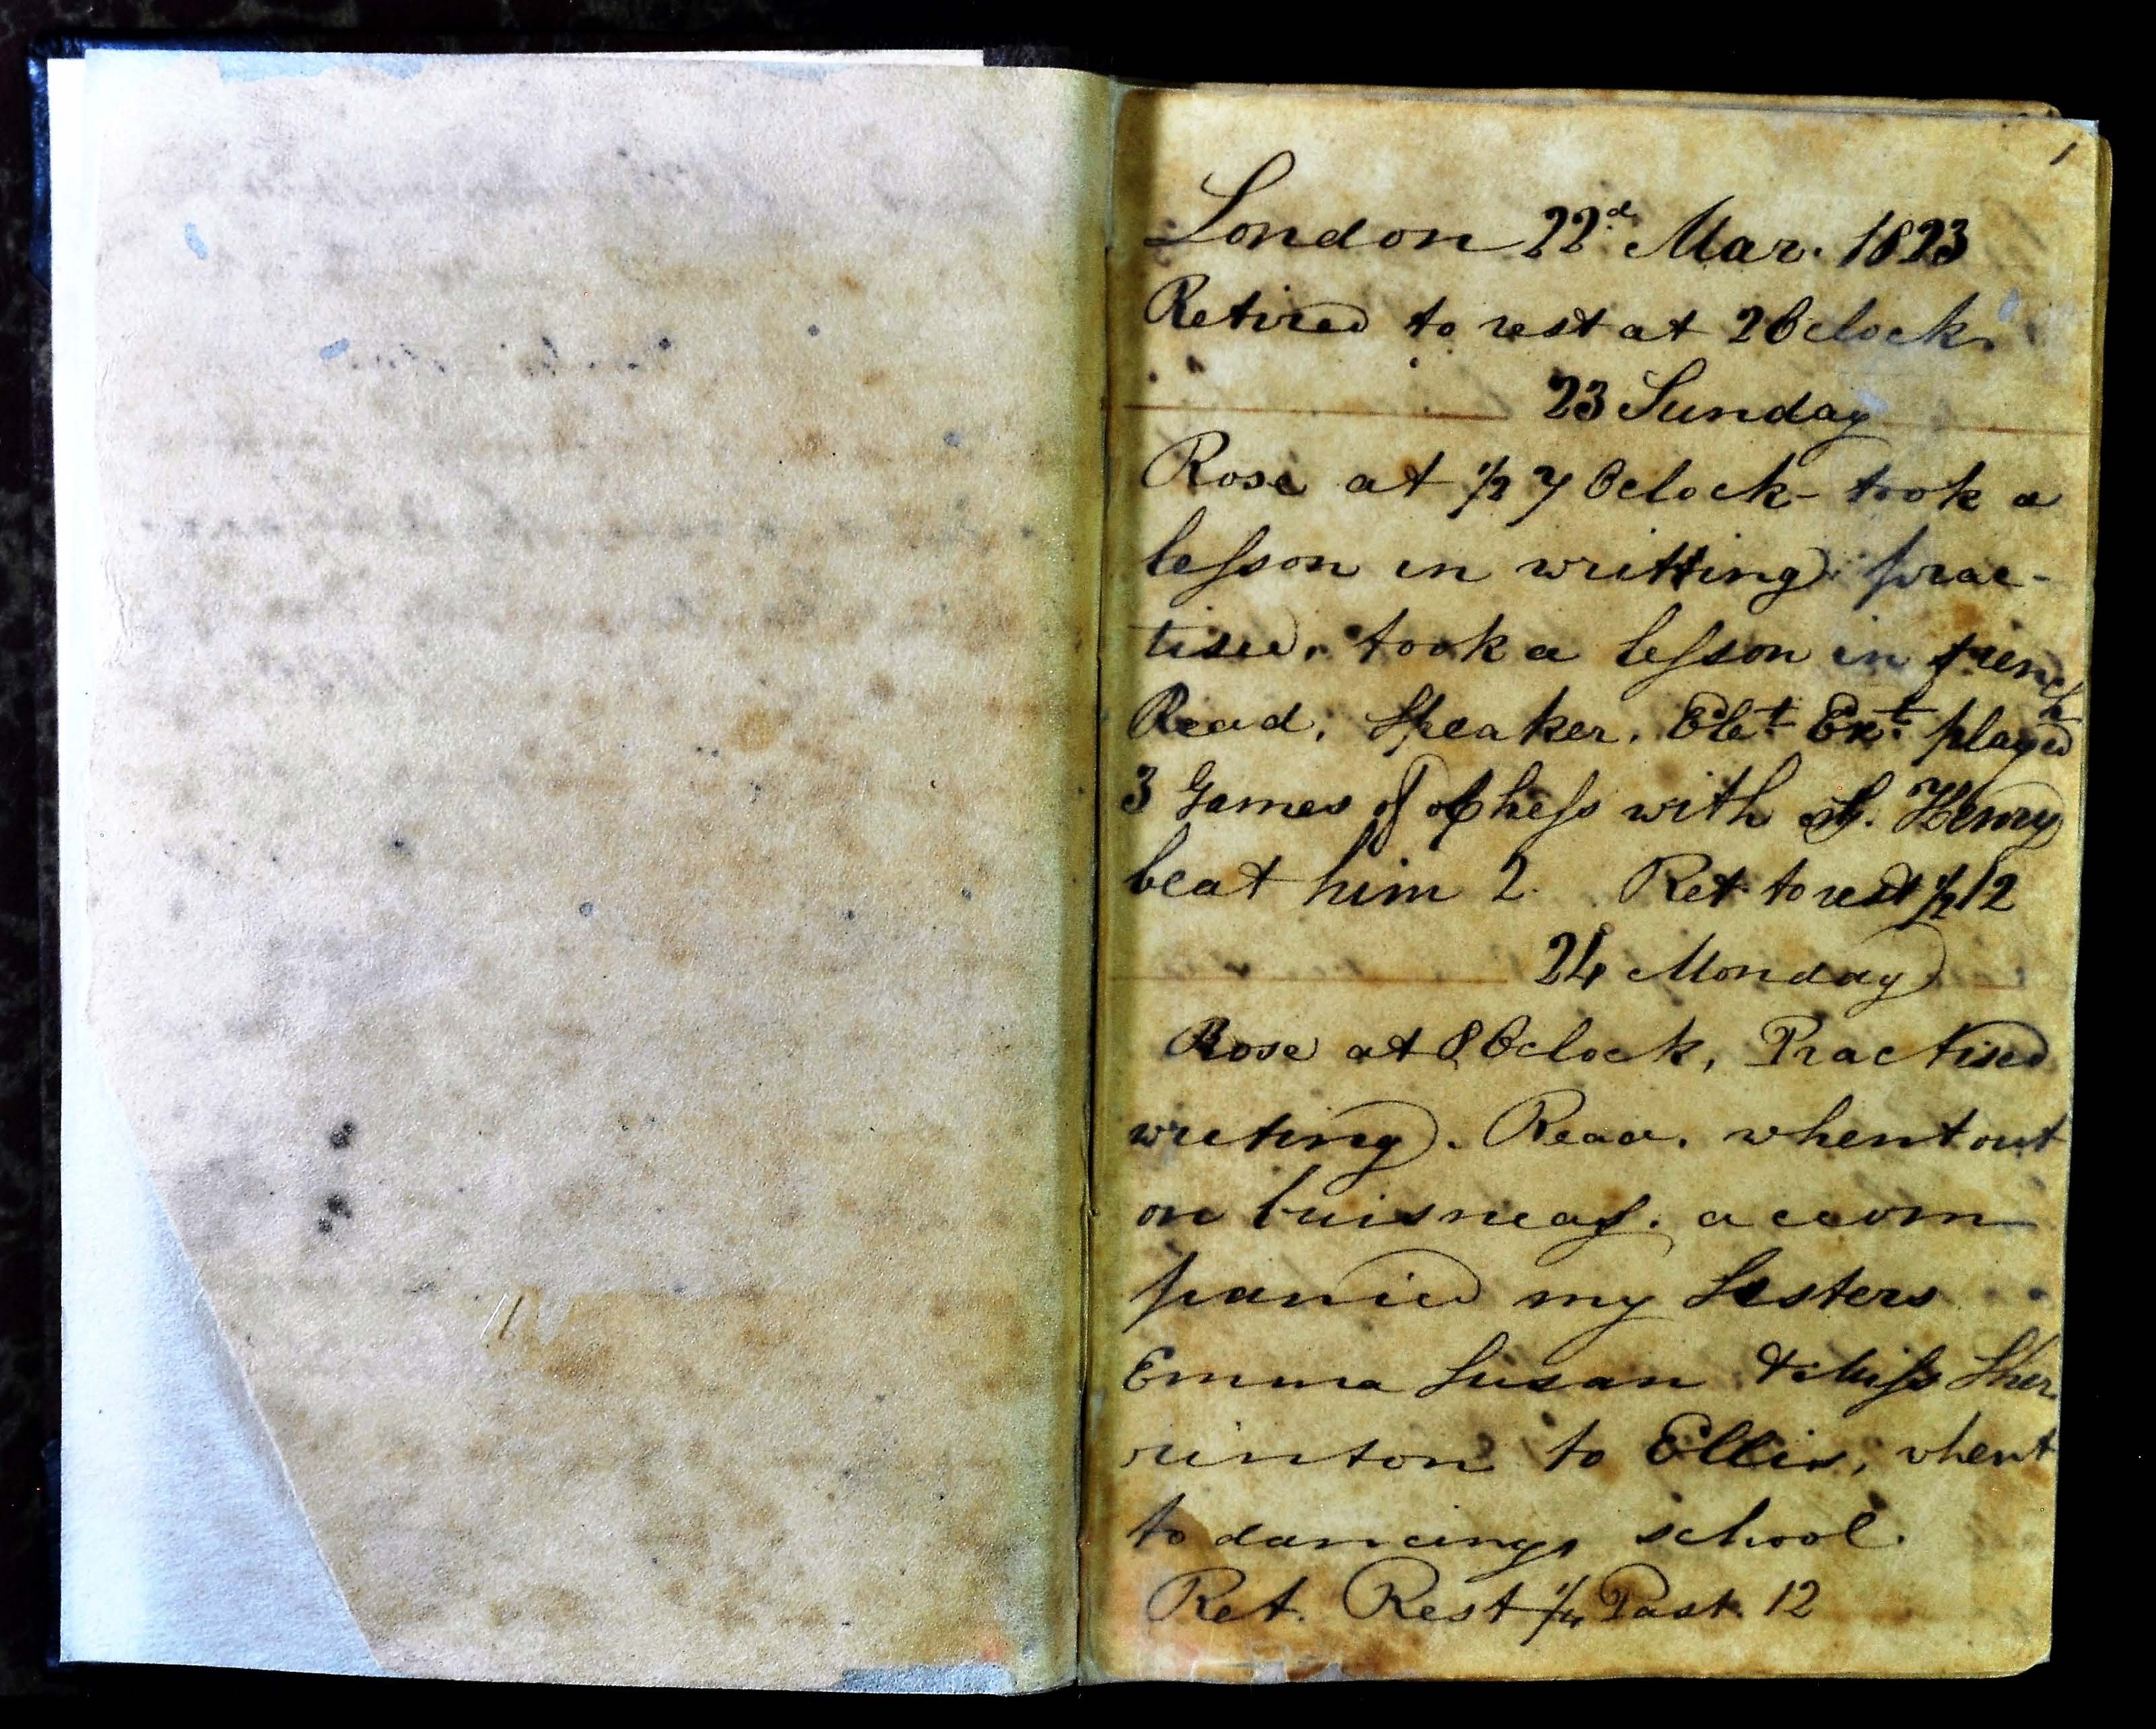 1
London 22d. Mar. 1823
Retired to rest at 2 Oclock.
23 Sunday
Rose at 1/2 7 Oclock - took a
leſson in writting prac-
tised. took a leſson in french
Read. Speaker. Ele.t Ex.t played
3 Games of Cheſs with S. Henry
beat him 2. Ret to rest 1/2 12
24 Monday
Rose at 8 Oclock, Practised
writing. Read. whent out
on buisneaſs. accom
panied my Sisters
Emma Susan & Miſs Sher
rinton to Ellis, whent
to dancing school.
Ret. Rest 1/4 Past. 12